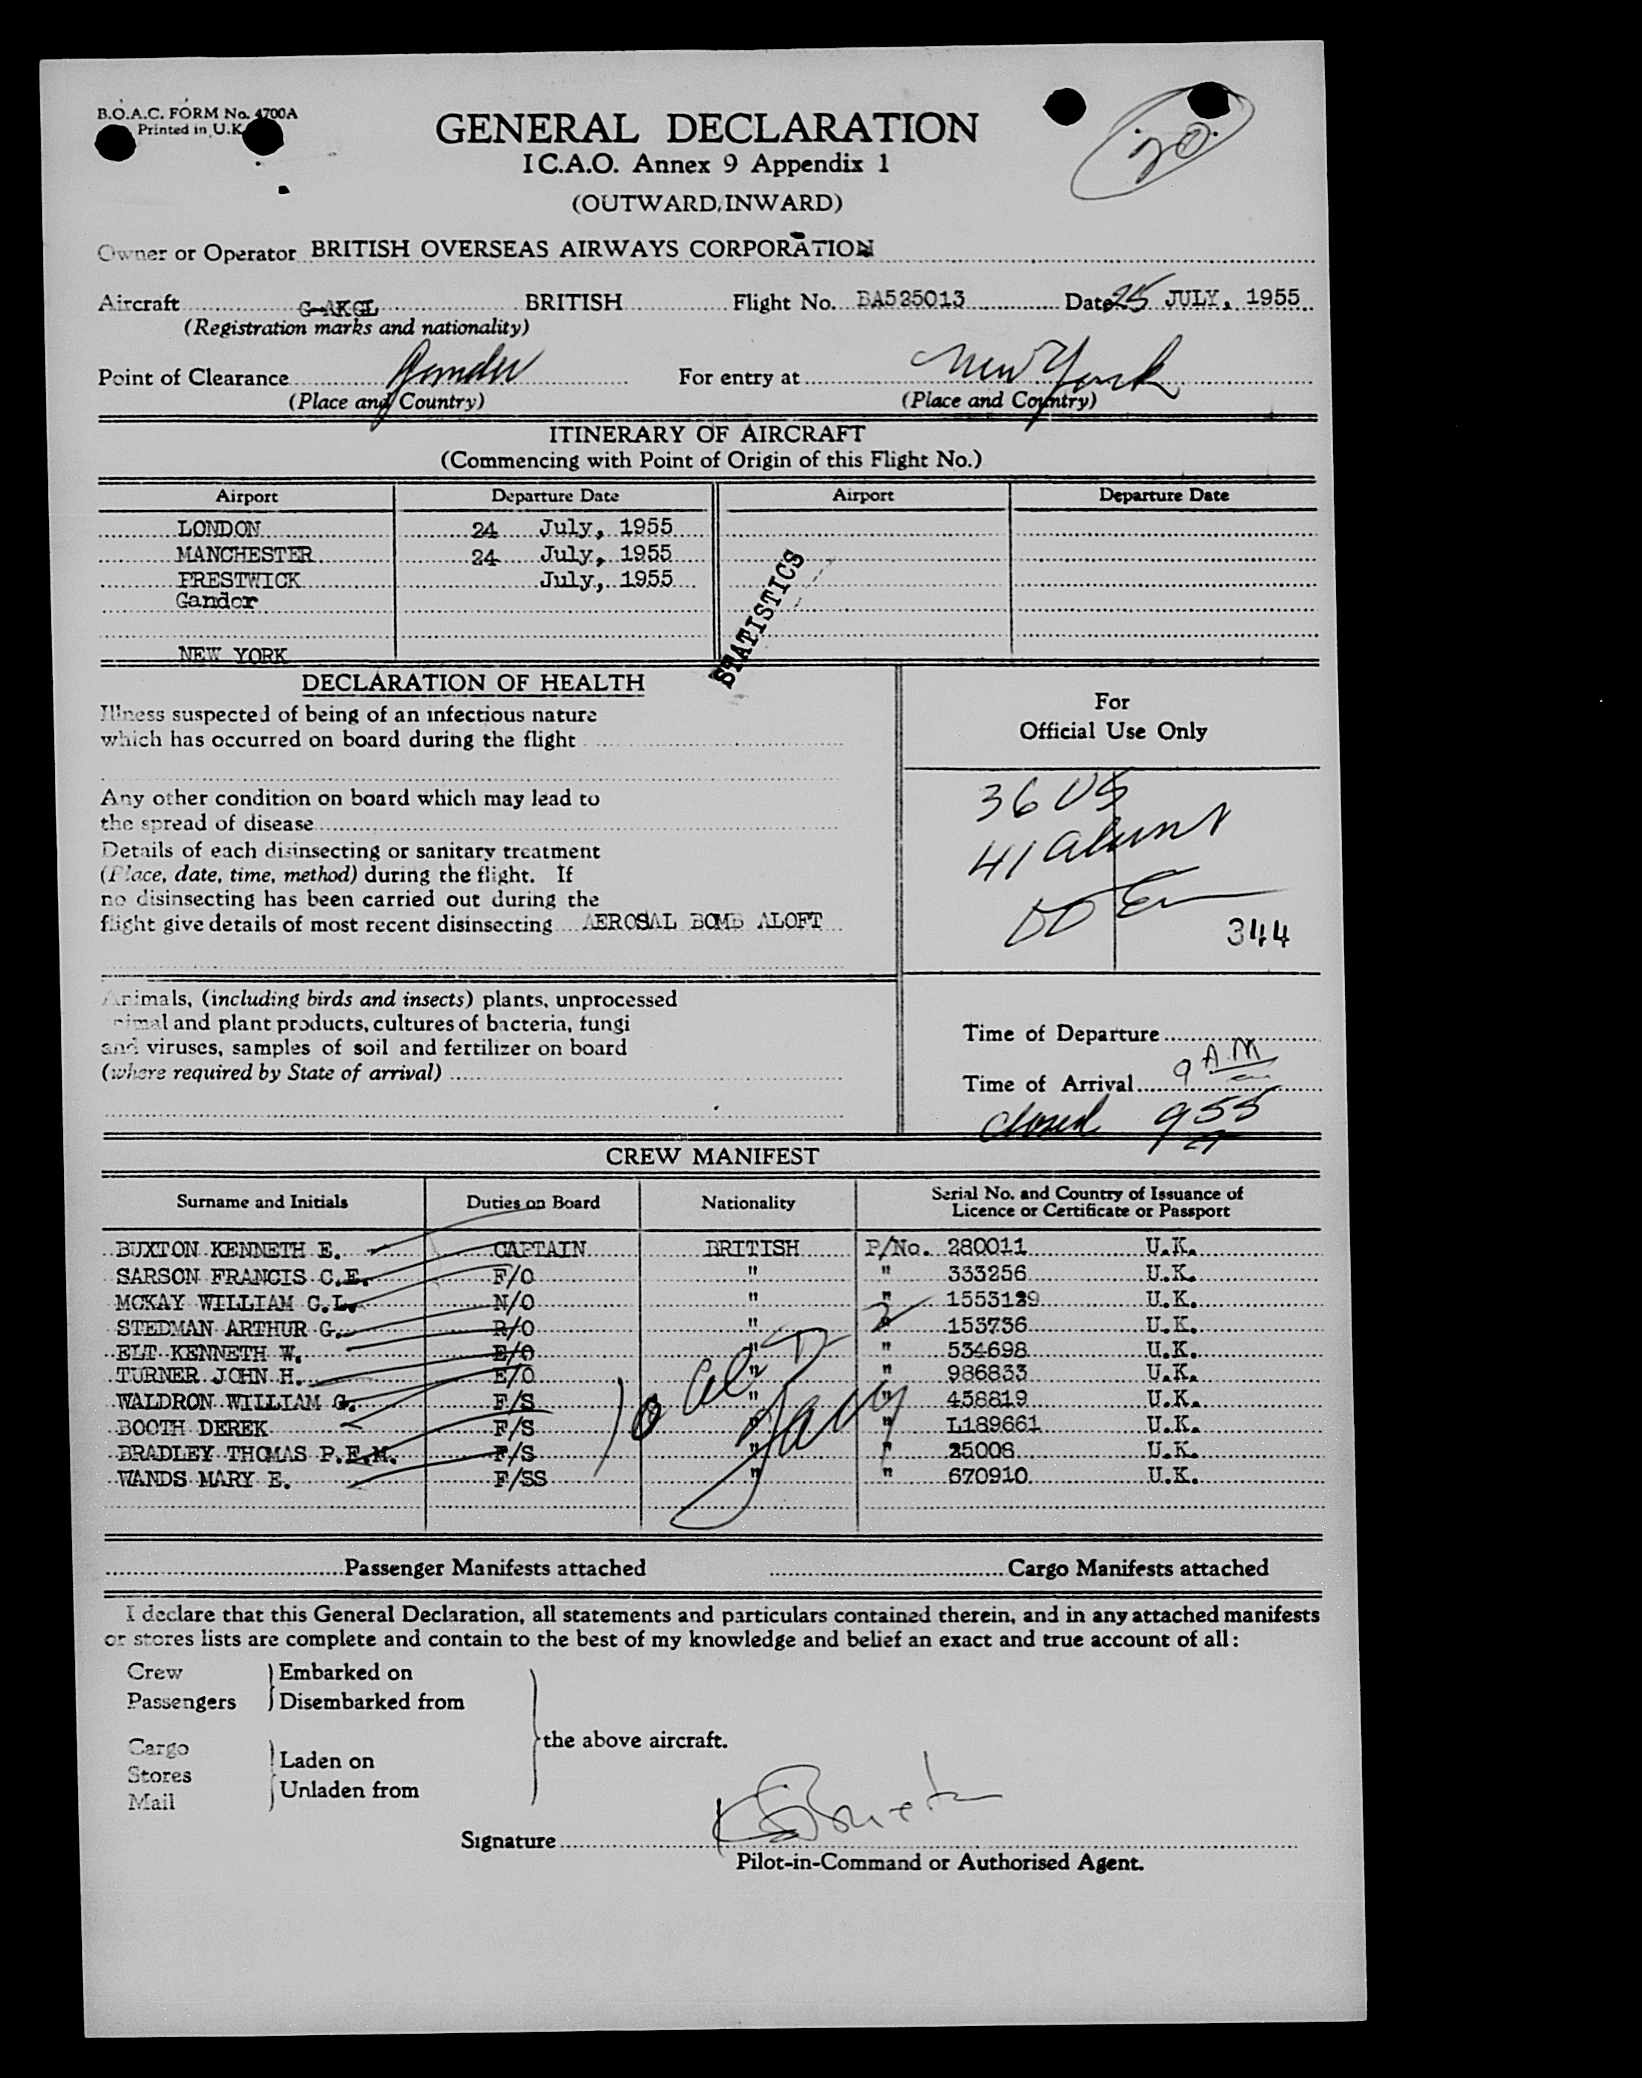 B.O.A.C. FORM No. 4700A
Printed in U.K.
GENERAL DECLARATION
I C.A.O. Annex 9 Appendix 1
(OUTWARD, INWARD)
20
Owner or Operator BRITISH OVERSEAS AIRWAYS CORPORATION
Aircraft G-AKGL BRITISH Flight No. BA525013 Date 25 JULY, 1955
(Registration marks and nationality)
Point of Clearance Gander For entry at New York
(Place and Country) (Place and Country)
ITINERARY OF AIRCRAFT
(Commencing with Point of Origin of this Flight No.)
Airport Departure Date Airport Departure Date
LONDON 24 July, 1955
MANCHESTER 24 July, 1955
PRESTWICK July, 1955
Gander
NEW YORK
STATISTICS
DECLARATION OF HEALTH
Illness suspected of being of an infectious nature
which has occurred on board during the flight
Any other condition on board which may lead to
the spread of disease
Details of each disinsecting or sanitary treatment
(Place, date, time, method) during the flight. If
no disinsecting has been carried out during the
flight give details of most recent disinsecting AEROSAL BOMB ALOFT
For
Official Use Only
36 US
41
344
Animals, (including birds and insects) plants, unprocessed
animal and plant products, cultures of bacteria, fungi
and viruses, samples of soil and fertilizer on board
(where required by State of arrival)
Time of Departure
Time of Arrival 9 AM
closed 955
CREW MANIFEST
Surname and Initials Duties on Board Nationality Serial No. and Country of Issuance of
Licence or Certificate or Passport
BUXTON KENNETH E. CAPTAIN BRITISH P/No. 280011 U.K.
SARSON FRANCIS C.E. F/O " " 333256 U.K.
MCKAY WILLIAM G.L. N/O " " 1553129 U.K.
STEDMAN ARTHUR G. R/O " " 153736 U.K.
ELT KENNETH W. E/O " " 534698 U.K.
TURNER JOHN H. E/O " " 986833 U.K.
WALDRON WILLIAM G. F/S " " 458819 U.K.
BOOTH DEREK F/S " " L189661 U.K.
BRADLEY THOMAS P.E.M. F/S " " 25008 U.K.
WANDS MARY E. F/SS " " 670910 U.K.
10
Passenger Manifests attached Cargo Manifests attached
I declare that this General Declaration, all statements and particulars contained therein, and in any attached manifests
or stores lists are complete and contain to the best of my knowledge and belief an exact and true account of all:
Crew Embarked on
Passengers Disembarked from
the above aircraft.
Cargo
Stores Laden on
Mail Unladen from
Signature
Pilot-in-Command or Authorised Agent.